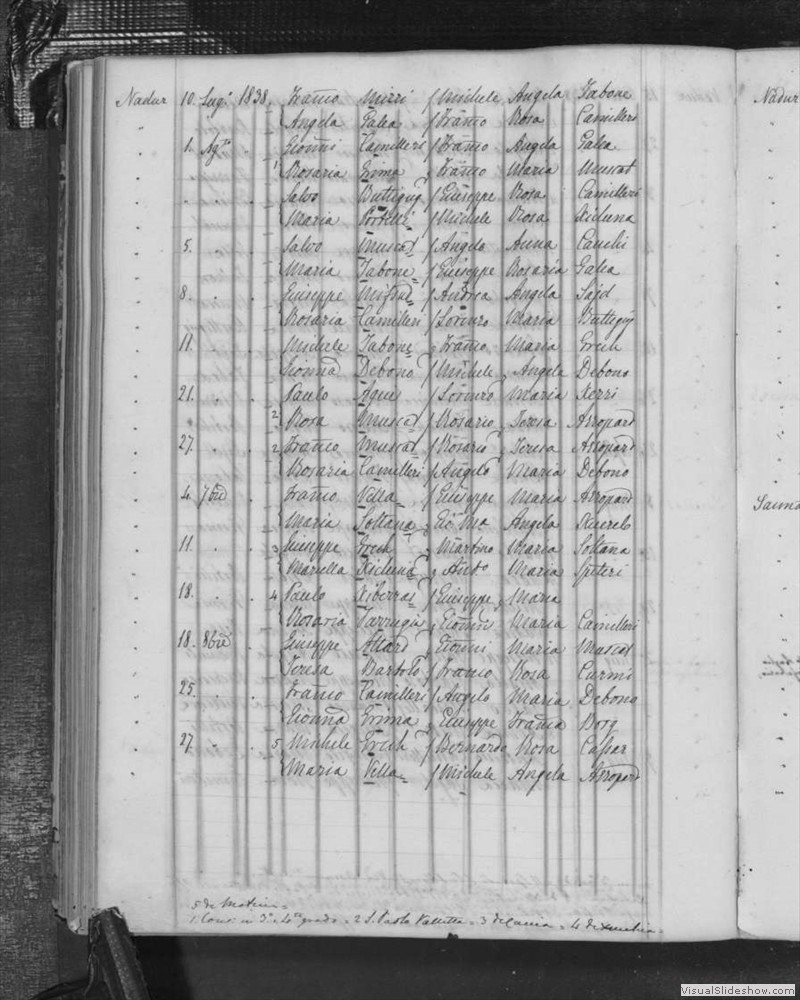 Nadur 10. Lug. 1838. Franco Mizzi / Michele Angela Tabone
Angela Galea / Franco Rosa Camilleri
1. Agto Gionni Camilleri / Franco Angela Galea
1 Rosaria Grima / Franco Maria Muscat
Salvo Buttigieg / Giuseppe Rosa Camilleri
Maria Portelli / Michele Rosa Xicluna
5. Salvo Muscat / Angelo Anna Cauchi
Maria Tabone / Giuseppe Rosaria Galea
8. Giuseppe Mifsud / Andrea Angela Sajd
Rosaria Camilleri / Lorenzo Maria Buttigig
11. Michele Tabone / Franco Maria Grech
Gionna Debono / Michele Angela Debono
21. Paulo Agius / Lorenzo Maria Xerri
2 Rosa Muscat / Rosario Teresa Attopard
27. 2 Franco Muscat / Rosario Teresa Attopard
Rosaria Camilleri / Angelo Maria Debono
4. 7bre Franco Vella / Giuseppe Maria Attopard
Maria Soltana Angela
11. 3 Giuseppe Grech / Martino Maria Soltana
Mariella Xicluna Anto Maria Spiteri
18. 4 Paulo Xiberras / Giuseppe Maria
Rosaria Farrugia / Gionni Maria Camilleri
18. 8bre Giuseppe Attard / Gionni Maria Muscat
Teresa Bartolo / Franco Rosa Curmi
25. Franco Camilleri / Angelo Maria Debono
Gionna Grima / Giuseppe Franca Borg
27. 5 Michele Grech / Bernardo Rosa Cassar
Maria Vella / Michele Angela Attopard
5 de
1 Cons: in 3° e 4to grado = 2 S. Paolo Valletta = 3 de = 4 de
Nadur
VisualSlideshow.com